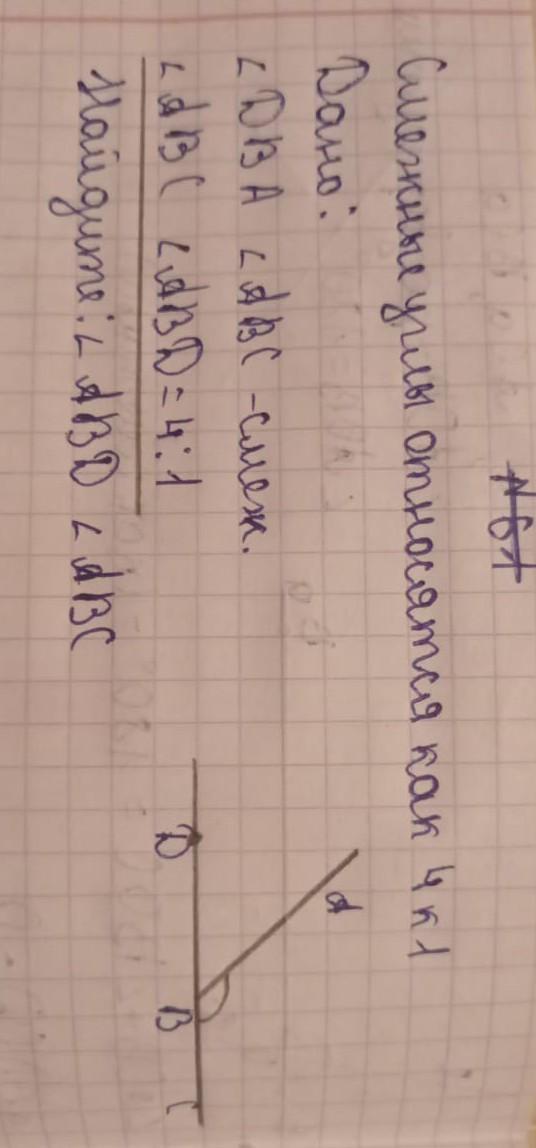 №61
Смежные углы относятся как 4 к 1
Дано:
∠DBA ∠ABC - смеж.
∠ABC ∠ABD = 4:1
Найдите: ∠ABD ∠ABC
A
D B C